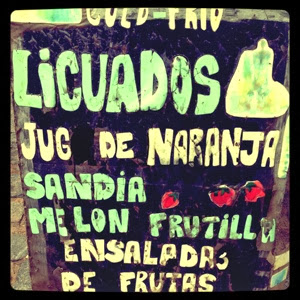 LICUADOS
JUG DE NARANJA
SANDIA
MELON FRUTILLA
ENSALADAS
DE FRUTAS